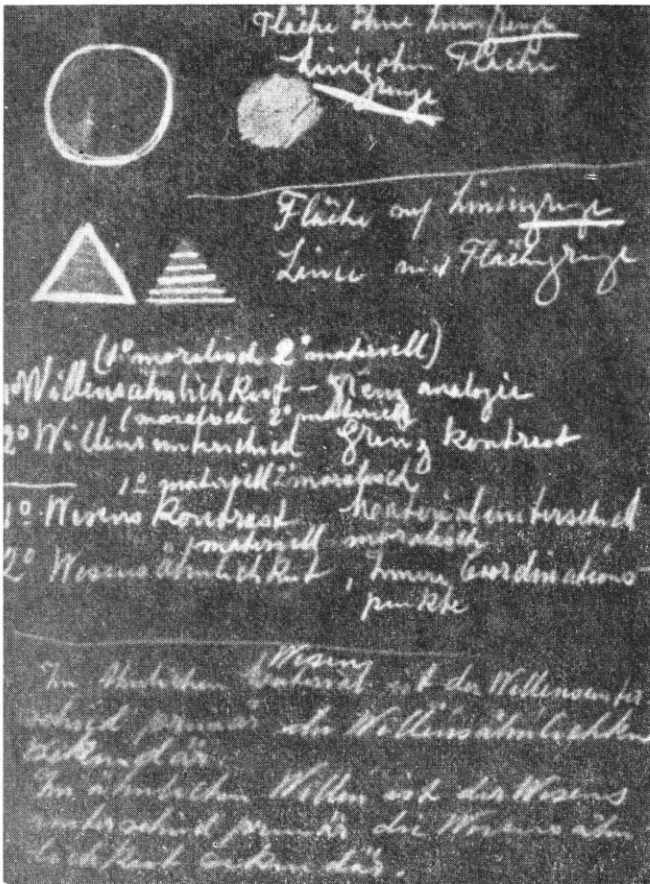 Fläche ohne Liniengrenze
Linie ohne Flächen
grenze
Fläche mit Liniengrenze
Linie mit Flächengrenze
(1º moralisch 2º materiell)
1º Willensähnlichkeit – Grenz analogie
(moralisch 2º materiell
2º Willensunterschied Grenz kontrast
1º materiell 2º moralisch
1º Wesens kontrast Materialunterschied
materiell moralisch
2º Wesensähnlichkeit, Innere Coordinations-
punkte
Wesens
Im ähnlichen ist der Willensunter-
schied primär die Willensähnlichkeit
sekundär.
Im ähnlichen Willen ist der Wesens
unterschied primär die Wesensähn-
lichkeit sekundär.